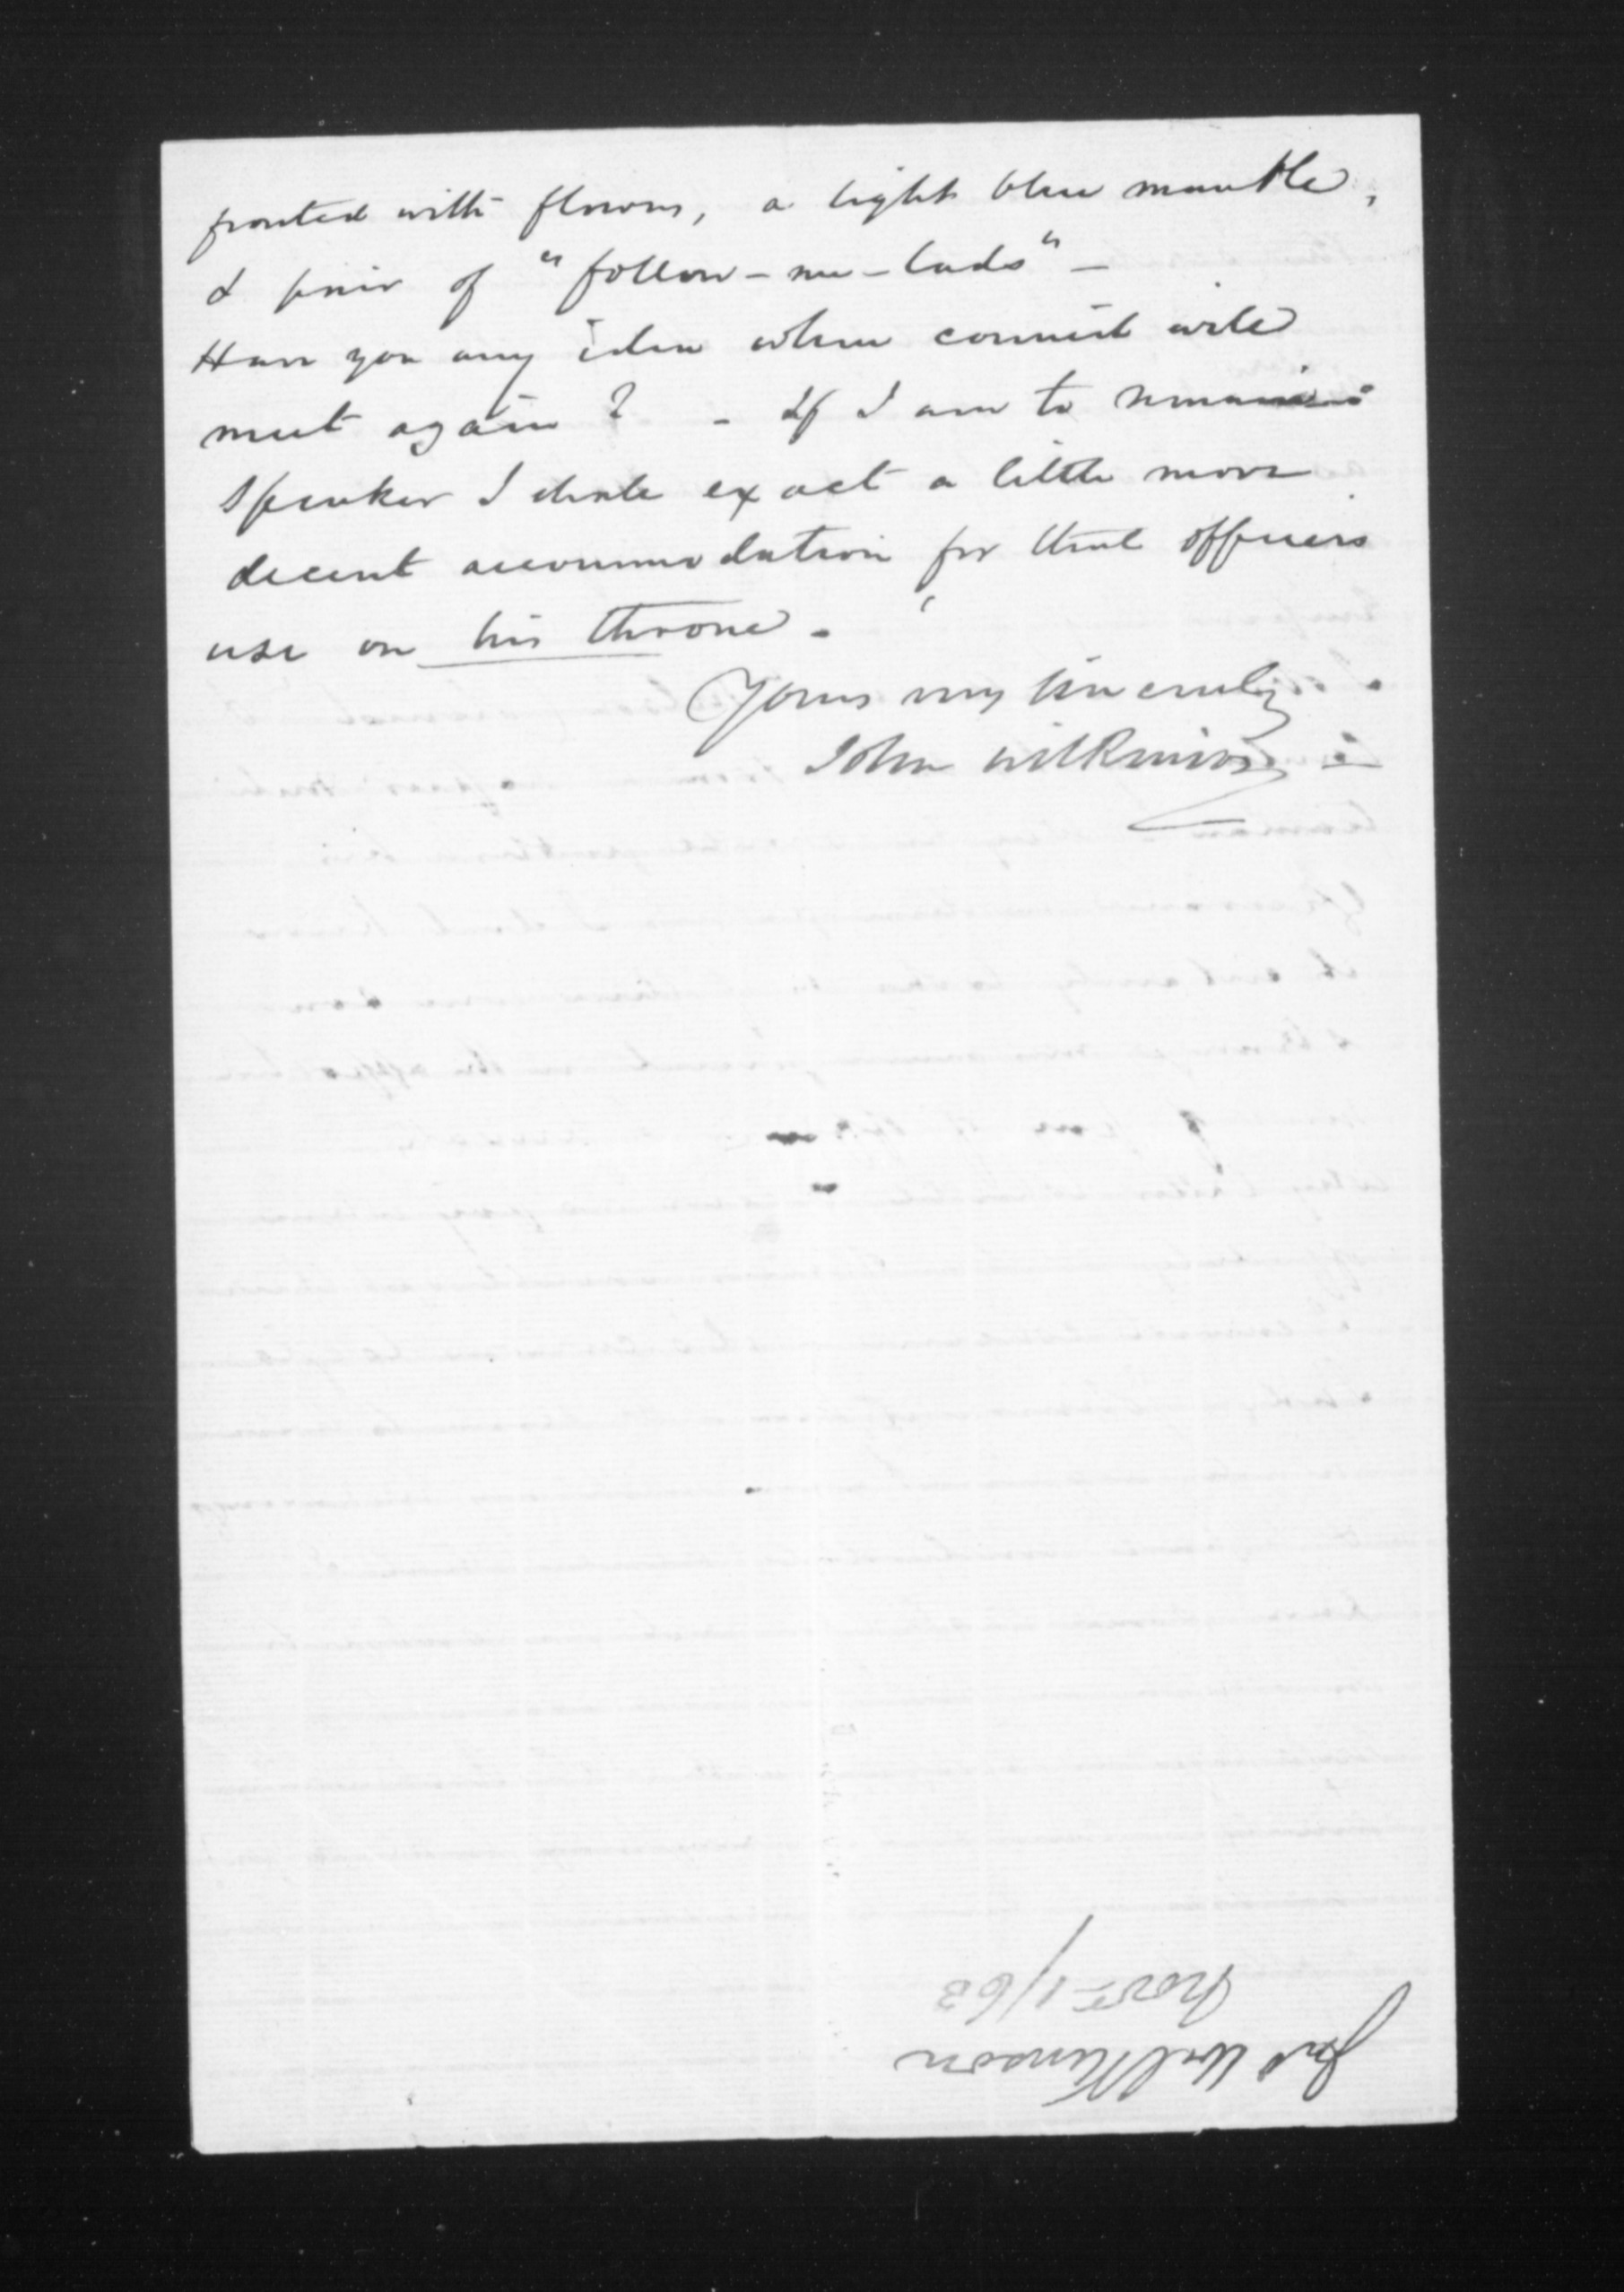 fronted with flowers, a light blue mantle,
& pair of "follow-me-lads" -
Have you any idea when council will
meet again? - If I am to remain
Speaker I shall exact a little more
decent accommodation for that officers
use on his throne.
Yours very sincerely
John Wilkinson
Jno Wilkinson
Nov 1/63